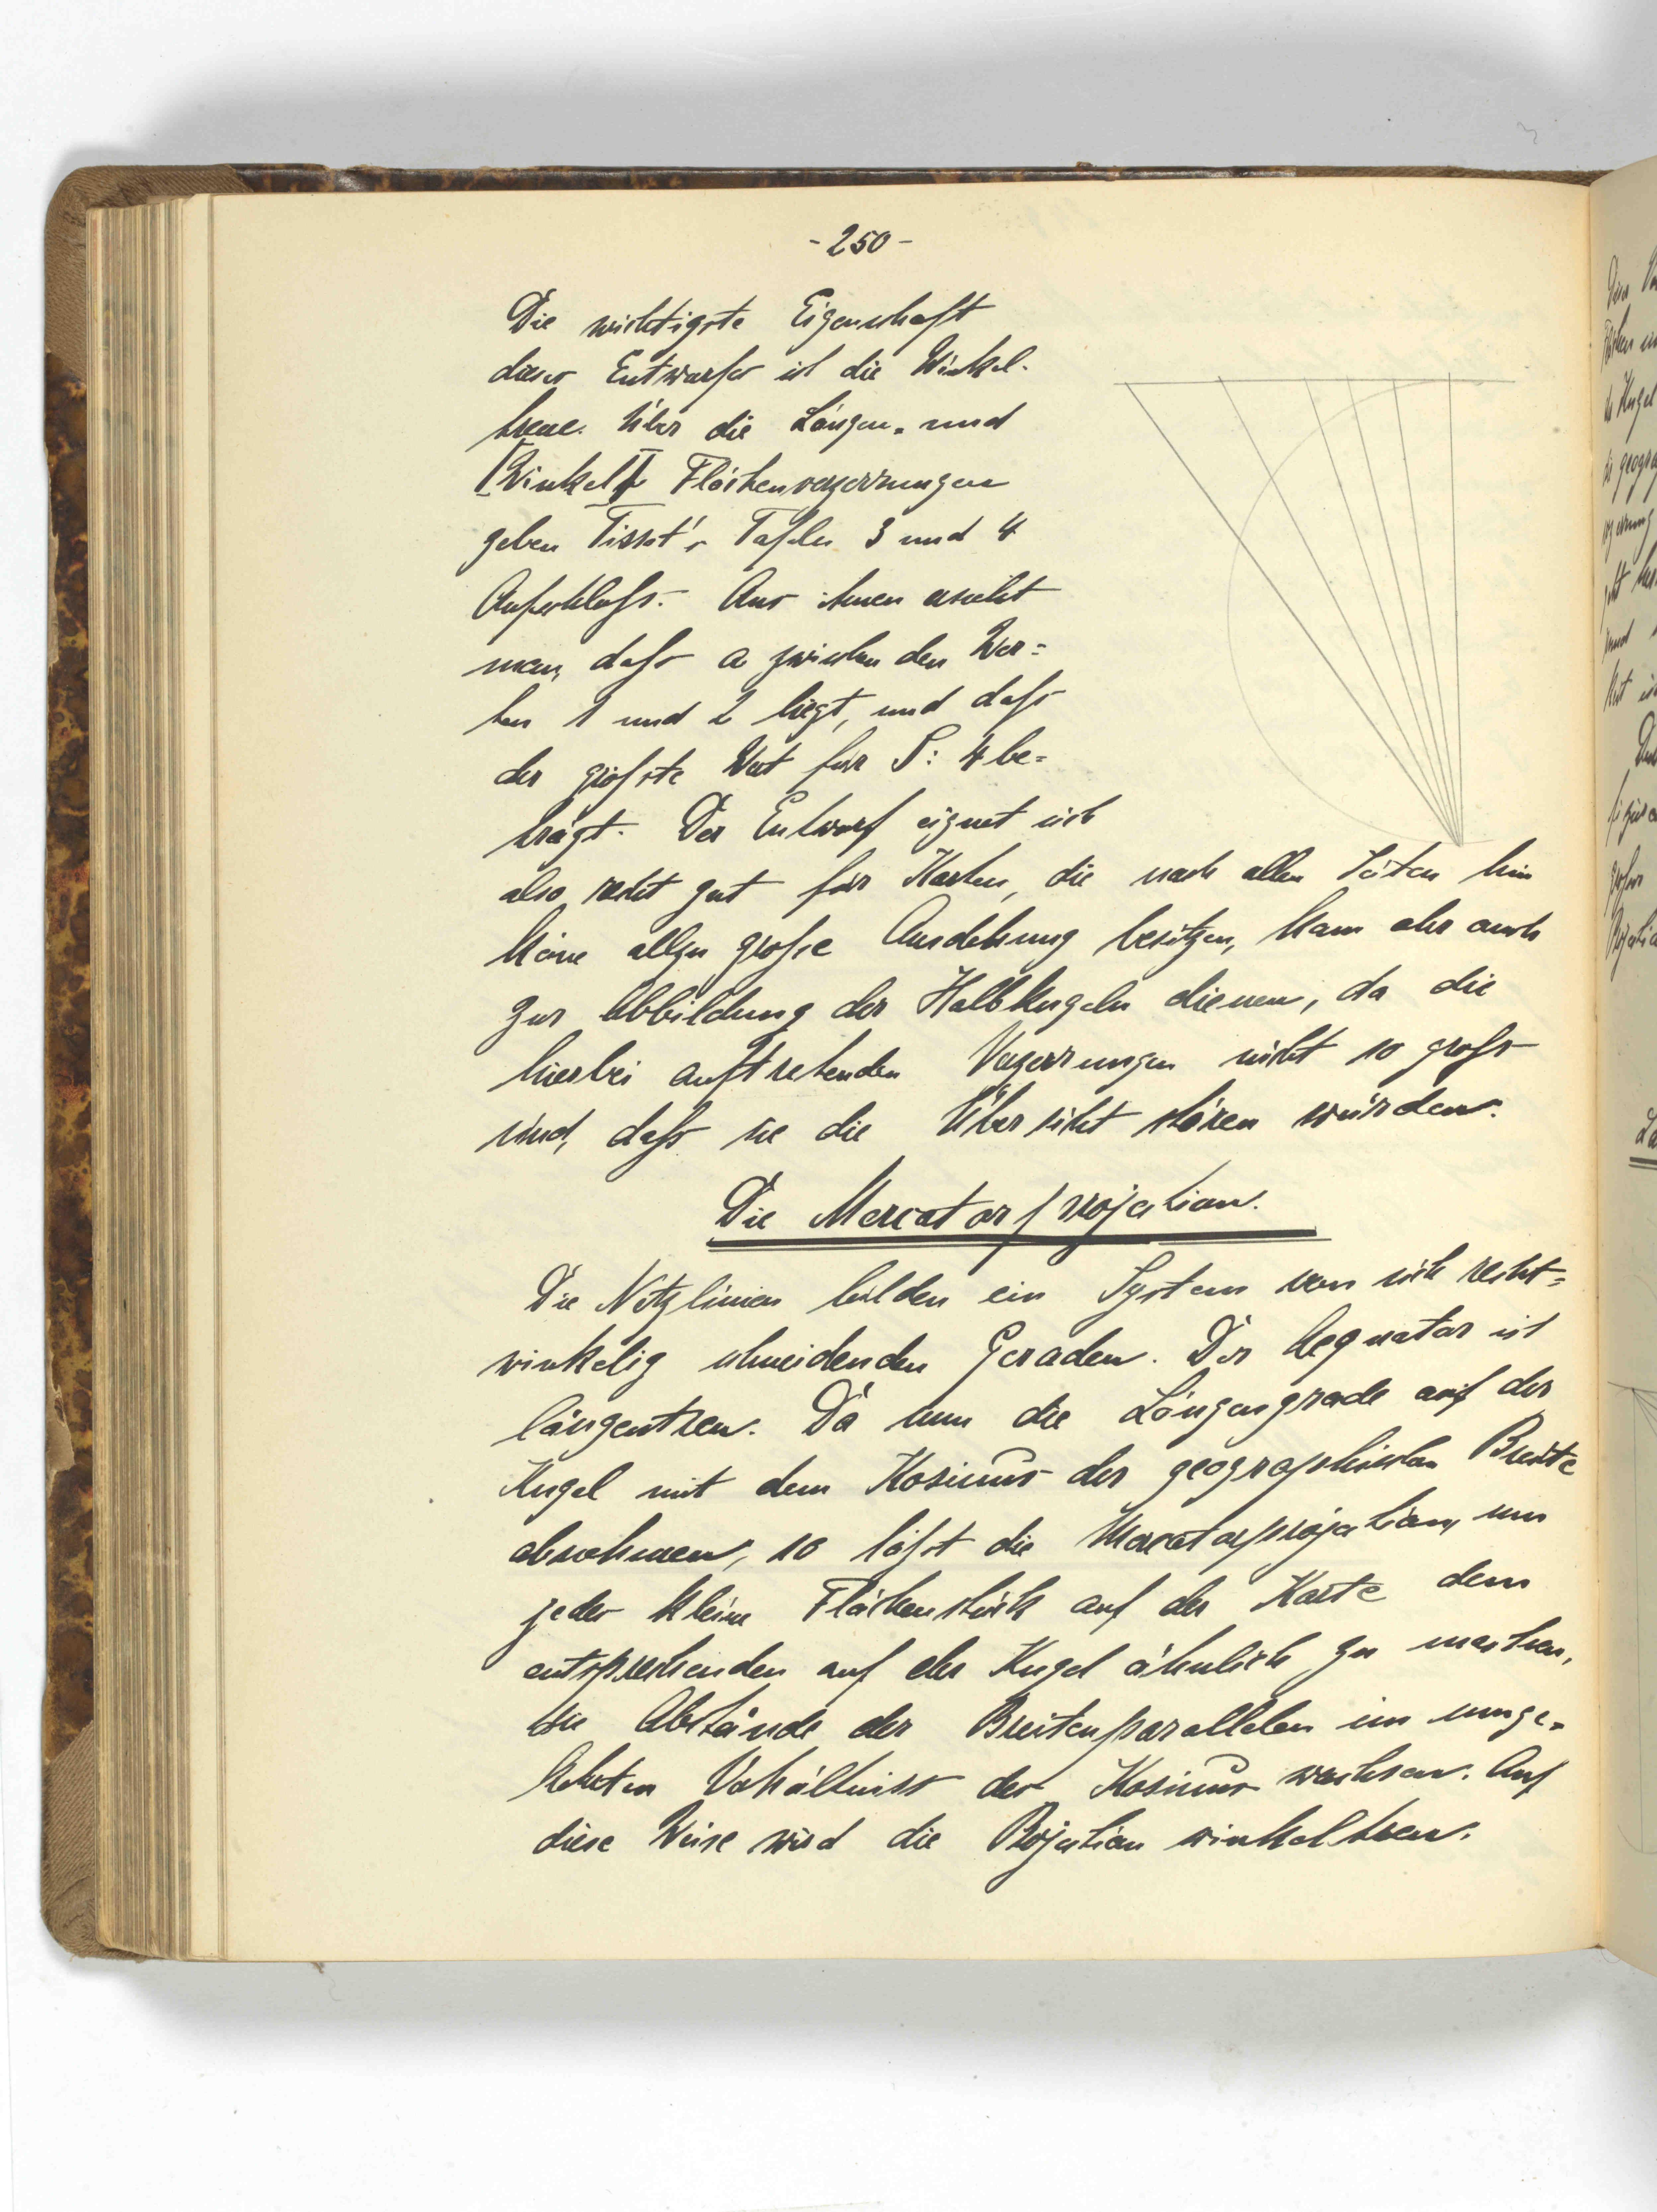 - 250 -
Die wichtigste Eigenschaft
dieses Entwurfes ist die Winkel-
treue. Über die Längen- und
[Winkel] Flächenverzerrungen
geben Tissot's Tafeln 3 und 4
Aufschluß. Aus ihnen ersieht
man, daß a zwischen den Wer=
ten 1 und 2 liegt, und daß
der größte Wert für S: 4 be=
trägt. Der Entwurf eignet sich
also recht gut für Karten, die nach allen Seiten hin
keine allzu große Ausdehnung besitzen, kann aber auch
zur Abbildung der Halbkugeln dienen, da die
hierbei auftretenden Verzerrungen nicht so groß
sind, daß sie die Übersicht stören würden.
Die Mercatorprojection.
Die Netzlinien bilden ein System von sich recht=
winkelig schneidenden Geraden. Der Aequator ist
längentreu. Da nun die Längengrade auf der
Kugel mit dem Kosinus der geographischen Breite
abnehmen, so läßt die Mercatorprojection, um
jedes kleine Flächenstück auf der Karte dem
entsprechenden auf der Kugel ähnlich zu machen,
die Abstände der Breitenparallelen im umge=
kehrten Verhältniss des Kosinus wachsen. Auf
diese Weise wird die Projection winkeltreu.